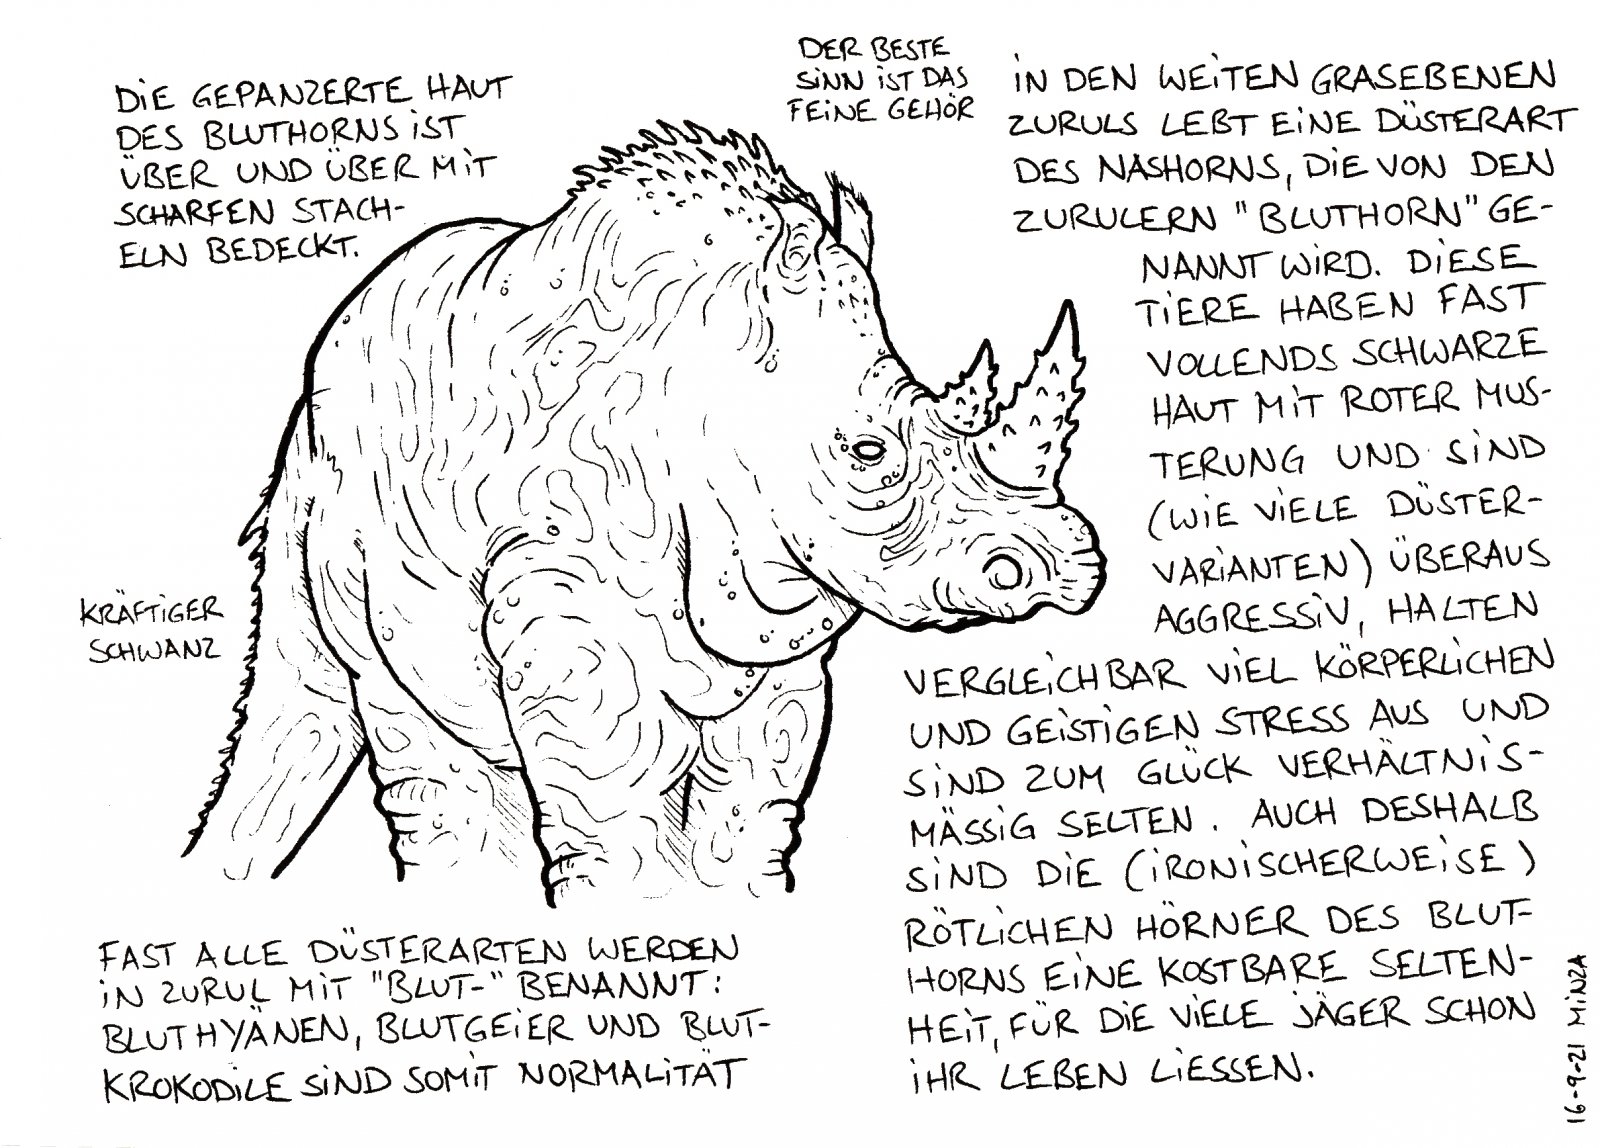 DIE GEPANZERTE HAUT
DES BLUTHORNS IST
ÜBER UND ÜBER MIT
SCHARFEN STACH-
ELN BEDECKT.
DER BESTE
SINN IST DAS
FEINE GEHÖR
IN DEN WEITEN GRASEBENEN
ZURULS LEBT EINE DÜSTERART
DES NASHORNS, DIE VON DEN
ZURULERN "BLUTHORN" GE-
NANNT WIRD. DIESE
TIERE HABEN FAST
VOLLENDS SCHWARZE
HAUT MIT ROTER MUS-
TERUNG UND SIND
(WIE VIELE DÜSTER-
VARIANTEN) ÜBERAUS
AGGRESSIV, HALTEN
VERGLEICHBAR VIEL KÖRPERLICHEN
UND GEISTIGEN STRESS AUS UND
SIND ZUM GLÜCK VERHÄLTNIS-
MÄSSIG SELTEN. AUCH DESHALB
SIND DIE (IRONISCHERWEISE)
RÖTLICHEN HÖRNER DES BLUT-
HORNS EINE KOSTBARE SELTEN-
HEIT, FÜR DIE VIELE JÄGER SCHON
IHR LEBEN LIESSEN.
KRÄFTIGER
SCHWANZ
FAST ALLE DÜSTERARTEN WERDEN
IN ZURUL MIT "BLUT-" BENANNT:
BLUTHYÄNEN, BLUTGEIER UND BLUT-
KROKODILE SIND SOMIT NORMALITÄT
16-9-21 MINZA